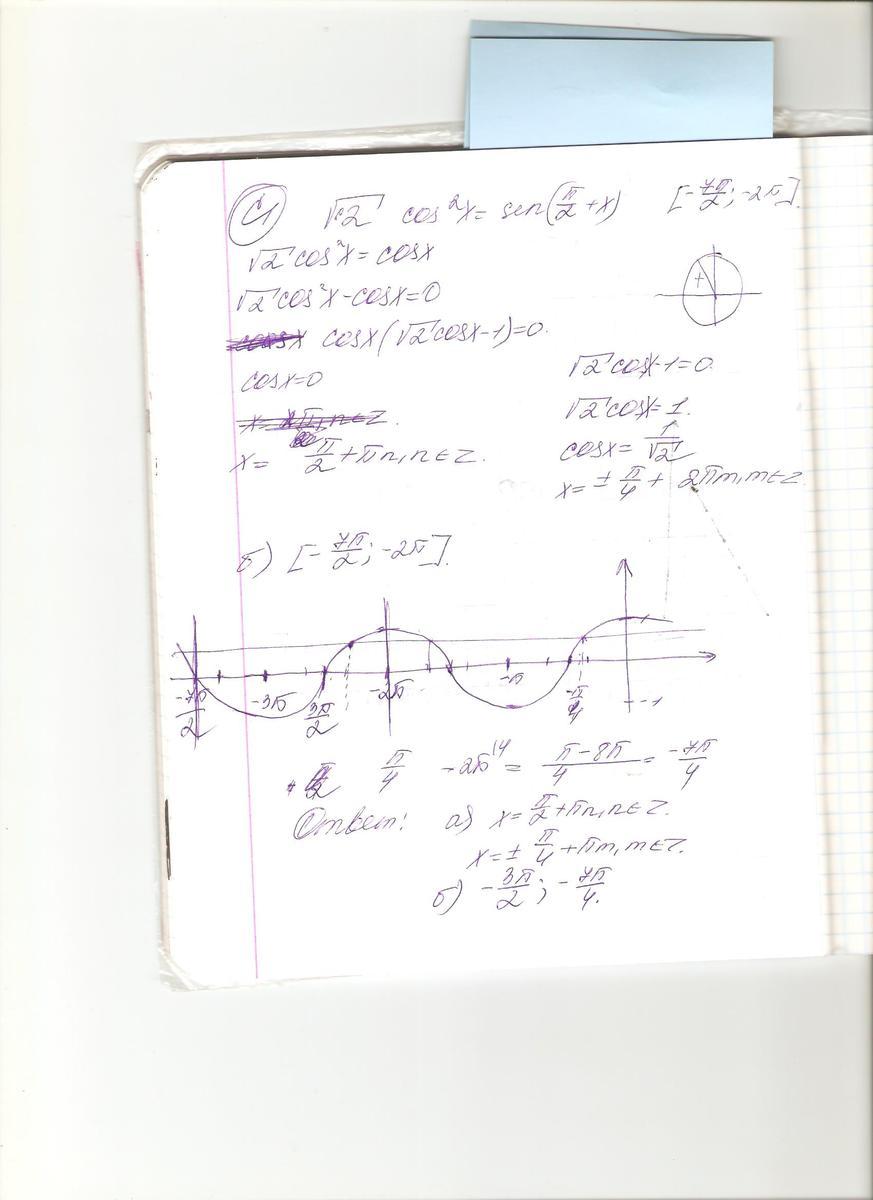 С1 √2 cos²x = sin(π/2 + x) [-7π/2; -2π].
√2 cos²x = cosx
√2 cos²x - cosx = 0
cosx(√2 cosx - 1) = 0.
cosx = 0 √2 cosx - 1 = 0.
√2 cosx = 1.
x = π/2 + πn, n∈Z. cosx = 1/√2
x = ± π/4 + 2πm, m∈Z
б) [-7π/2; -2π].
-7π/2 -3π 3π/2 -2π -π -π/4 -1
π/4 - 2π = (π - 8π)/4 = -7π/4
Ответ: а) x = π/2 + πn, n∈Z.
x = ± π/4 + πm, m∈Z.
б) -3π/2; -7π/4.